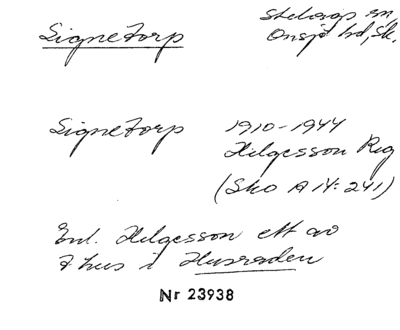 Signetorp
Stehags sn,
Onsjö hd, Sk.
Signetorp 1910-1944
Helgesson Reg
(Sko A 14: 241)
Enl. Helgesson ett av
7 hus i Husraden
Nr 23938